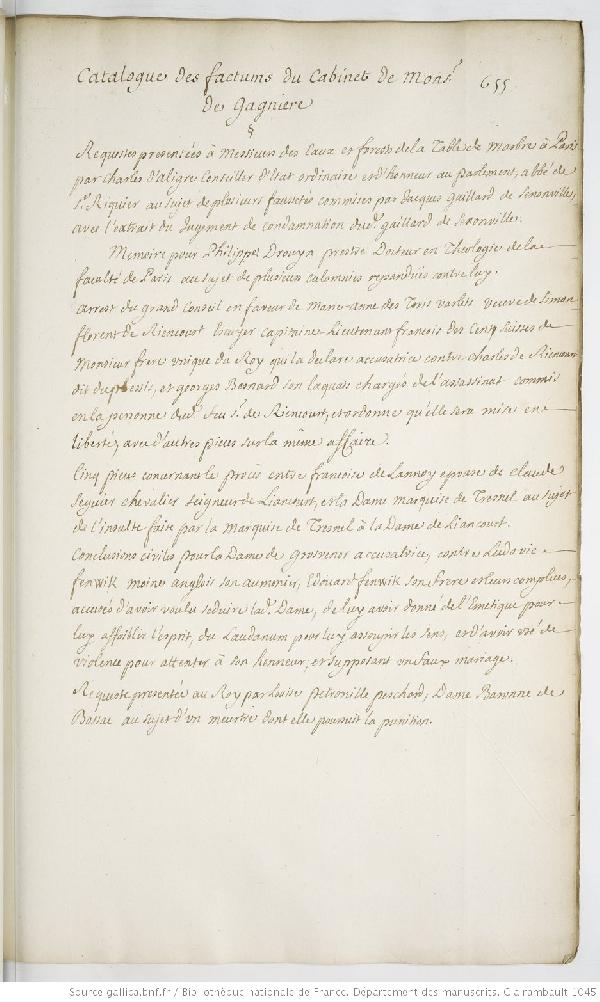 Catalogue des factums du Cabinet de Mons.r 655
de Gagniere
§
Requestes presentées à Messieurs des Eaux et forests de la Table de Marbre à Paris
par Charles d'aligre Conseiller d'Etat ordinaire et d'honneur au parlement, abbé de
S.t Riquier au sujet de plusieurs faussetés commises par Jacques Gaillard de Senonville,
avec l'extrait du Jugement de condamnation dud.t gaillard de Senonville.
Memoire pour Philippe Drouyn prestre Docteur en Theologie de la
faculté de Paris au sujet de plusieurs calomnies repandües contre luy.
arrest du grand Conseil en faveur de Marie-Anne des Tons varlets veuve de Simon
florent de Riencourt Ecuyer Capitaine Lieutenant francois des Cent Suisses de
Monsieur frere unique du Roy qui la declare accusatrice contre Charles de Riencourt
dit duplessis, et georges Besnard son laquais chargés de l'assassinat commis
en la personne dud.t feu S.r de Riencourt, et ordonne qu'elle sera mise en
liberté, avec d'autres pieces sur la même affaire.
Cinq pieces concernant le procés entre francoise de Lannoy epouse de Claude
Seguier chevalier Seigneur de Liancourt, et la Dame Marquise de Tresnel au sujet
de l'insulte faite par la Marquise de Tresnel à la Dame de Liancourt.
Conclusions civiles pour la Dame de grosvenor accusatrice, contre Ludovic
fenwik moine anglois son aumonier, Edouard fenwik son frere et leurs complices,
accusés d'avoir voulu seduire lad.e Dame, de luy avoir donné de l'Emetique pour
luy affoiblir l'esprit, du Laudanum pour luy assoupir les sens, et d'avoir usé de
violence pour attenter à son honneur, et supposant un faux mariage.
Requeste presentée au Roy par Louise petronille peschard, Dame Baronne de
Bossac au sujet d'un meurtre dont elle poursuit la punition.
Source gallica.bnf.fr / Bibliothèque nationale de France. Département des manuscrits. Clairambault 1045